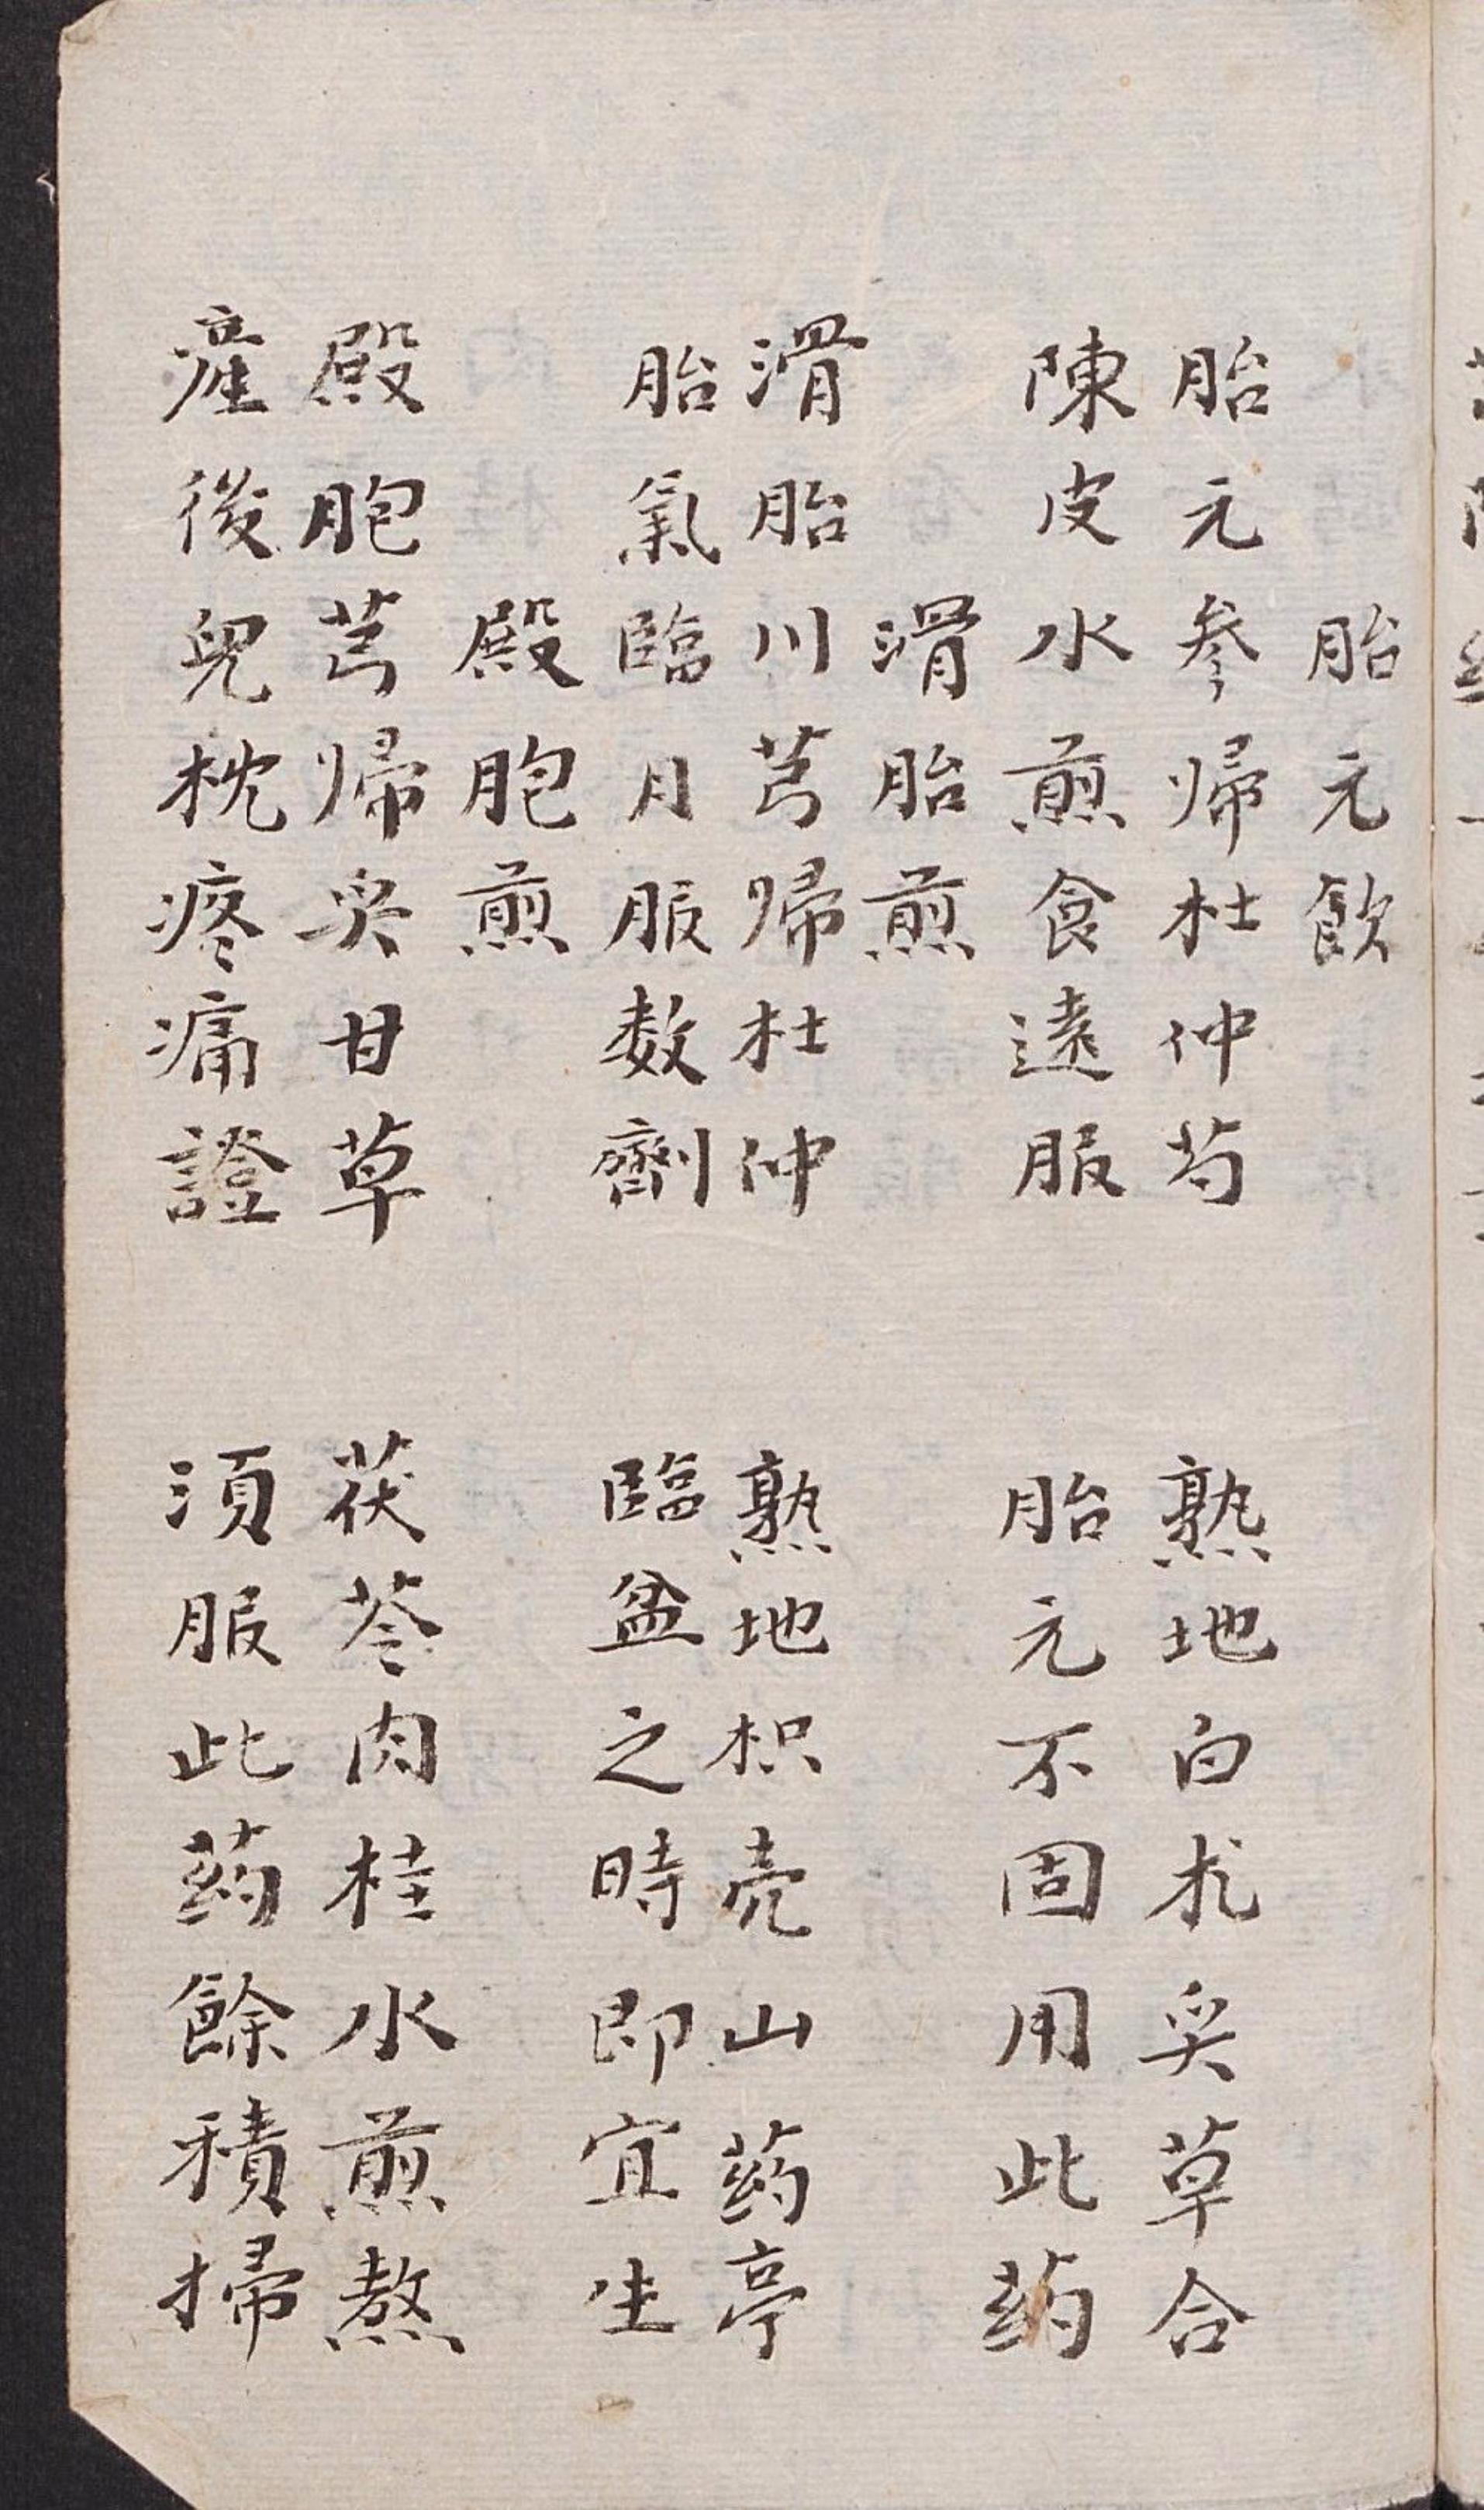 胎元飲
胎元参歸杜仲芍 熟地白朮炙草合
陳皮水煎食遠服 胎元不固用此药
滑胎煎
滑胎川芎歸杜仲 熟地枳壳山药亭
胎氣臨月服数劑 臨盆之時即宜生
殿胞煎
殿胞芎歸炙甘草 茯苓肉桂水煎熬
産後兒枕疼痛證 須服此药餘積掃